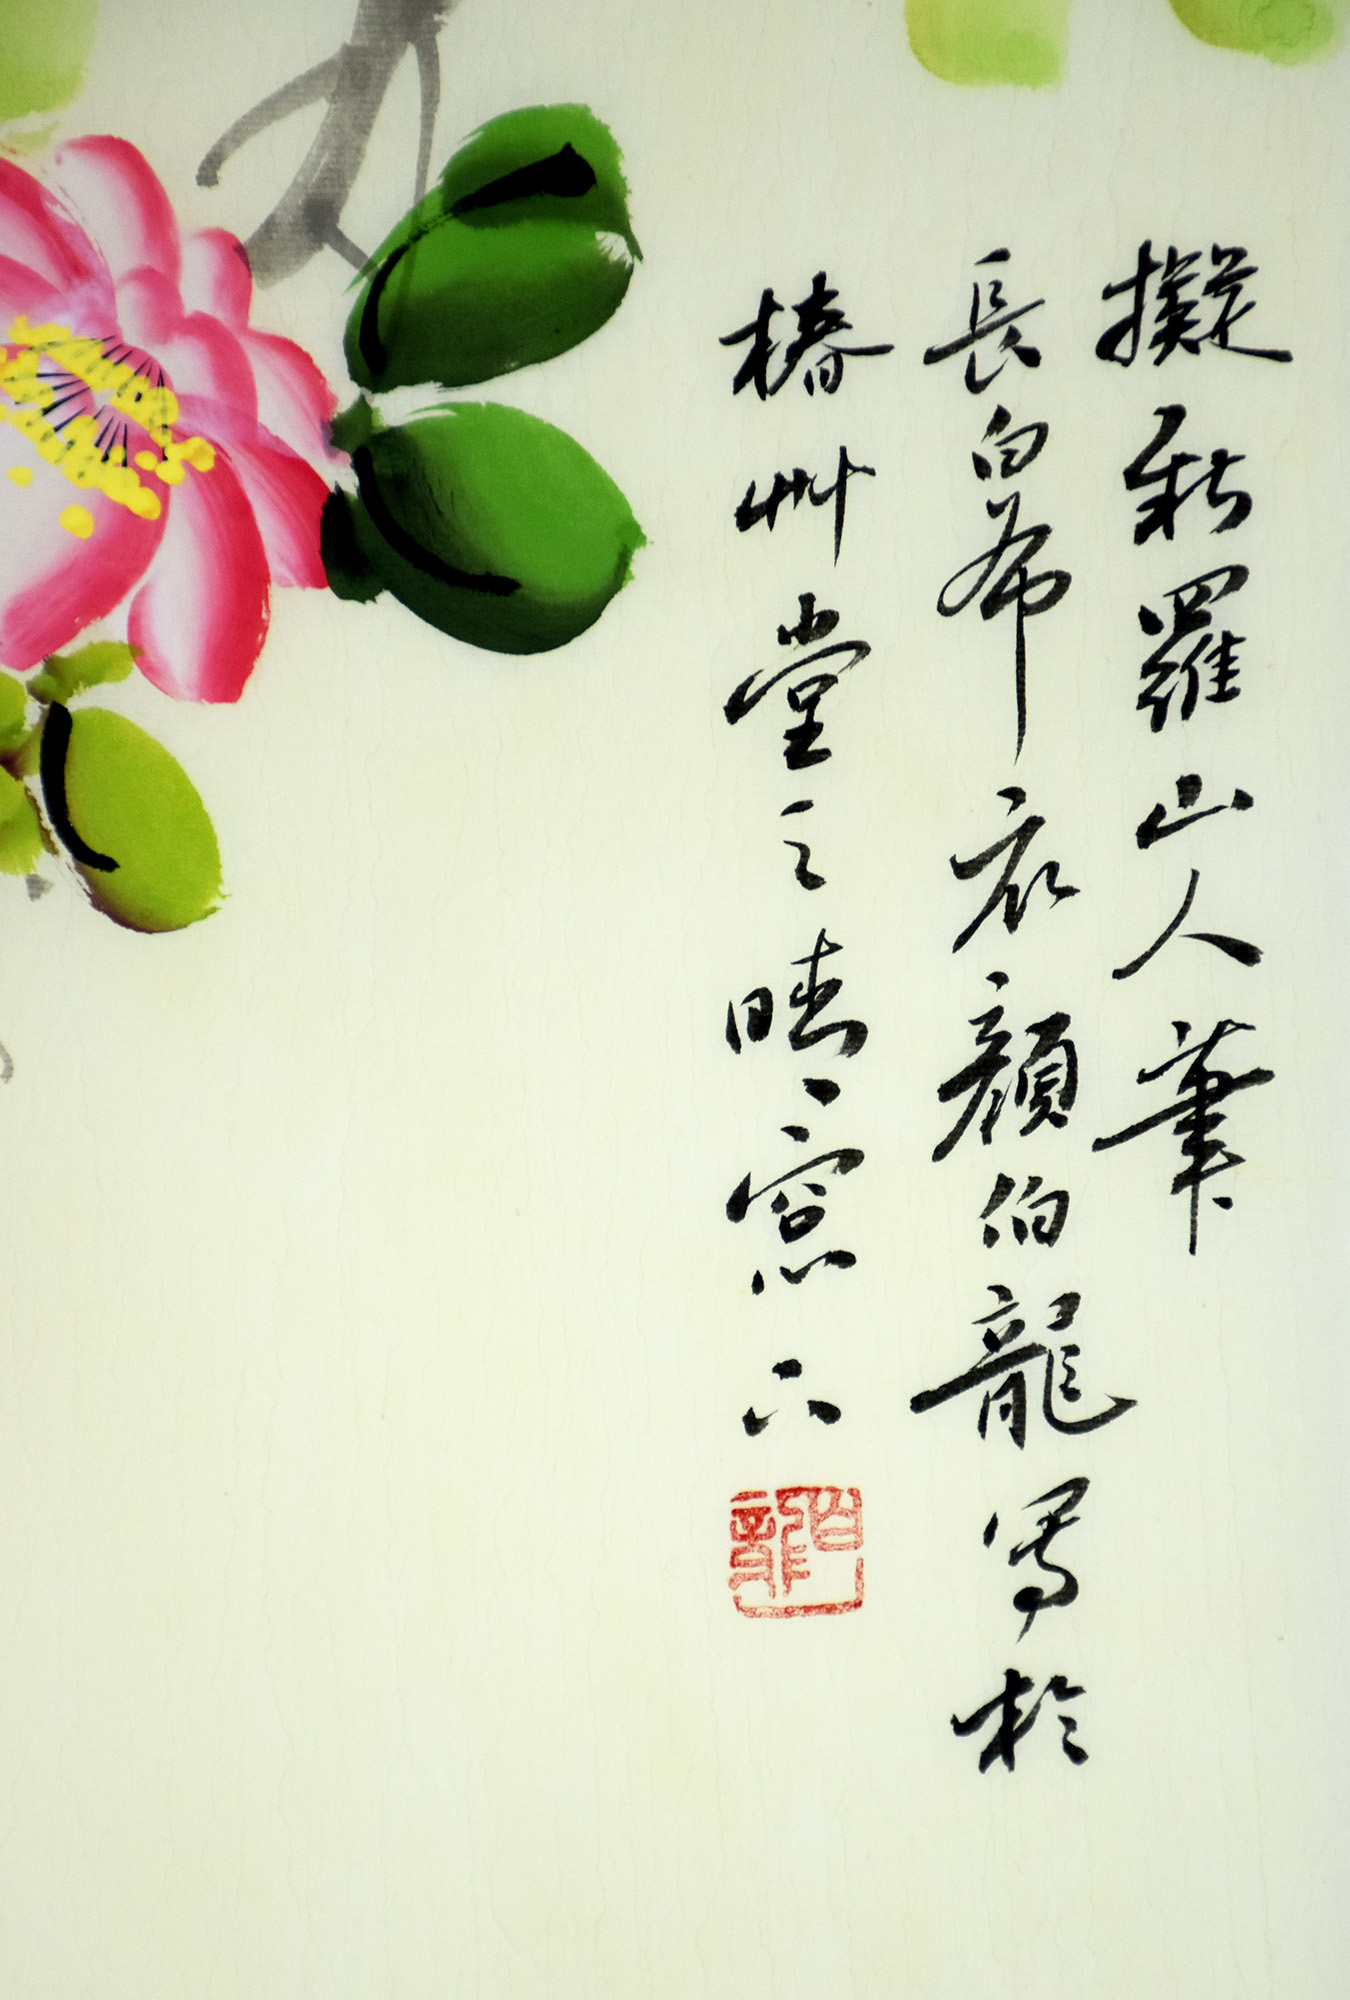 擬新羅山人筆
長白布衣顏伯龍寫於
椿艸堂之晴窓下
伯龍